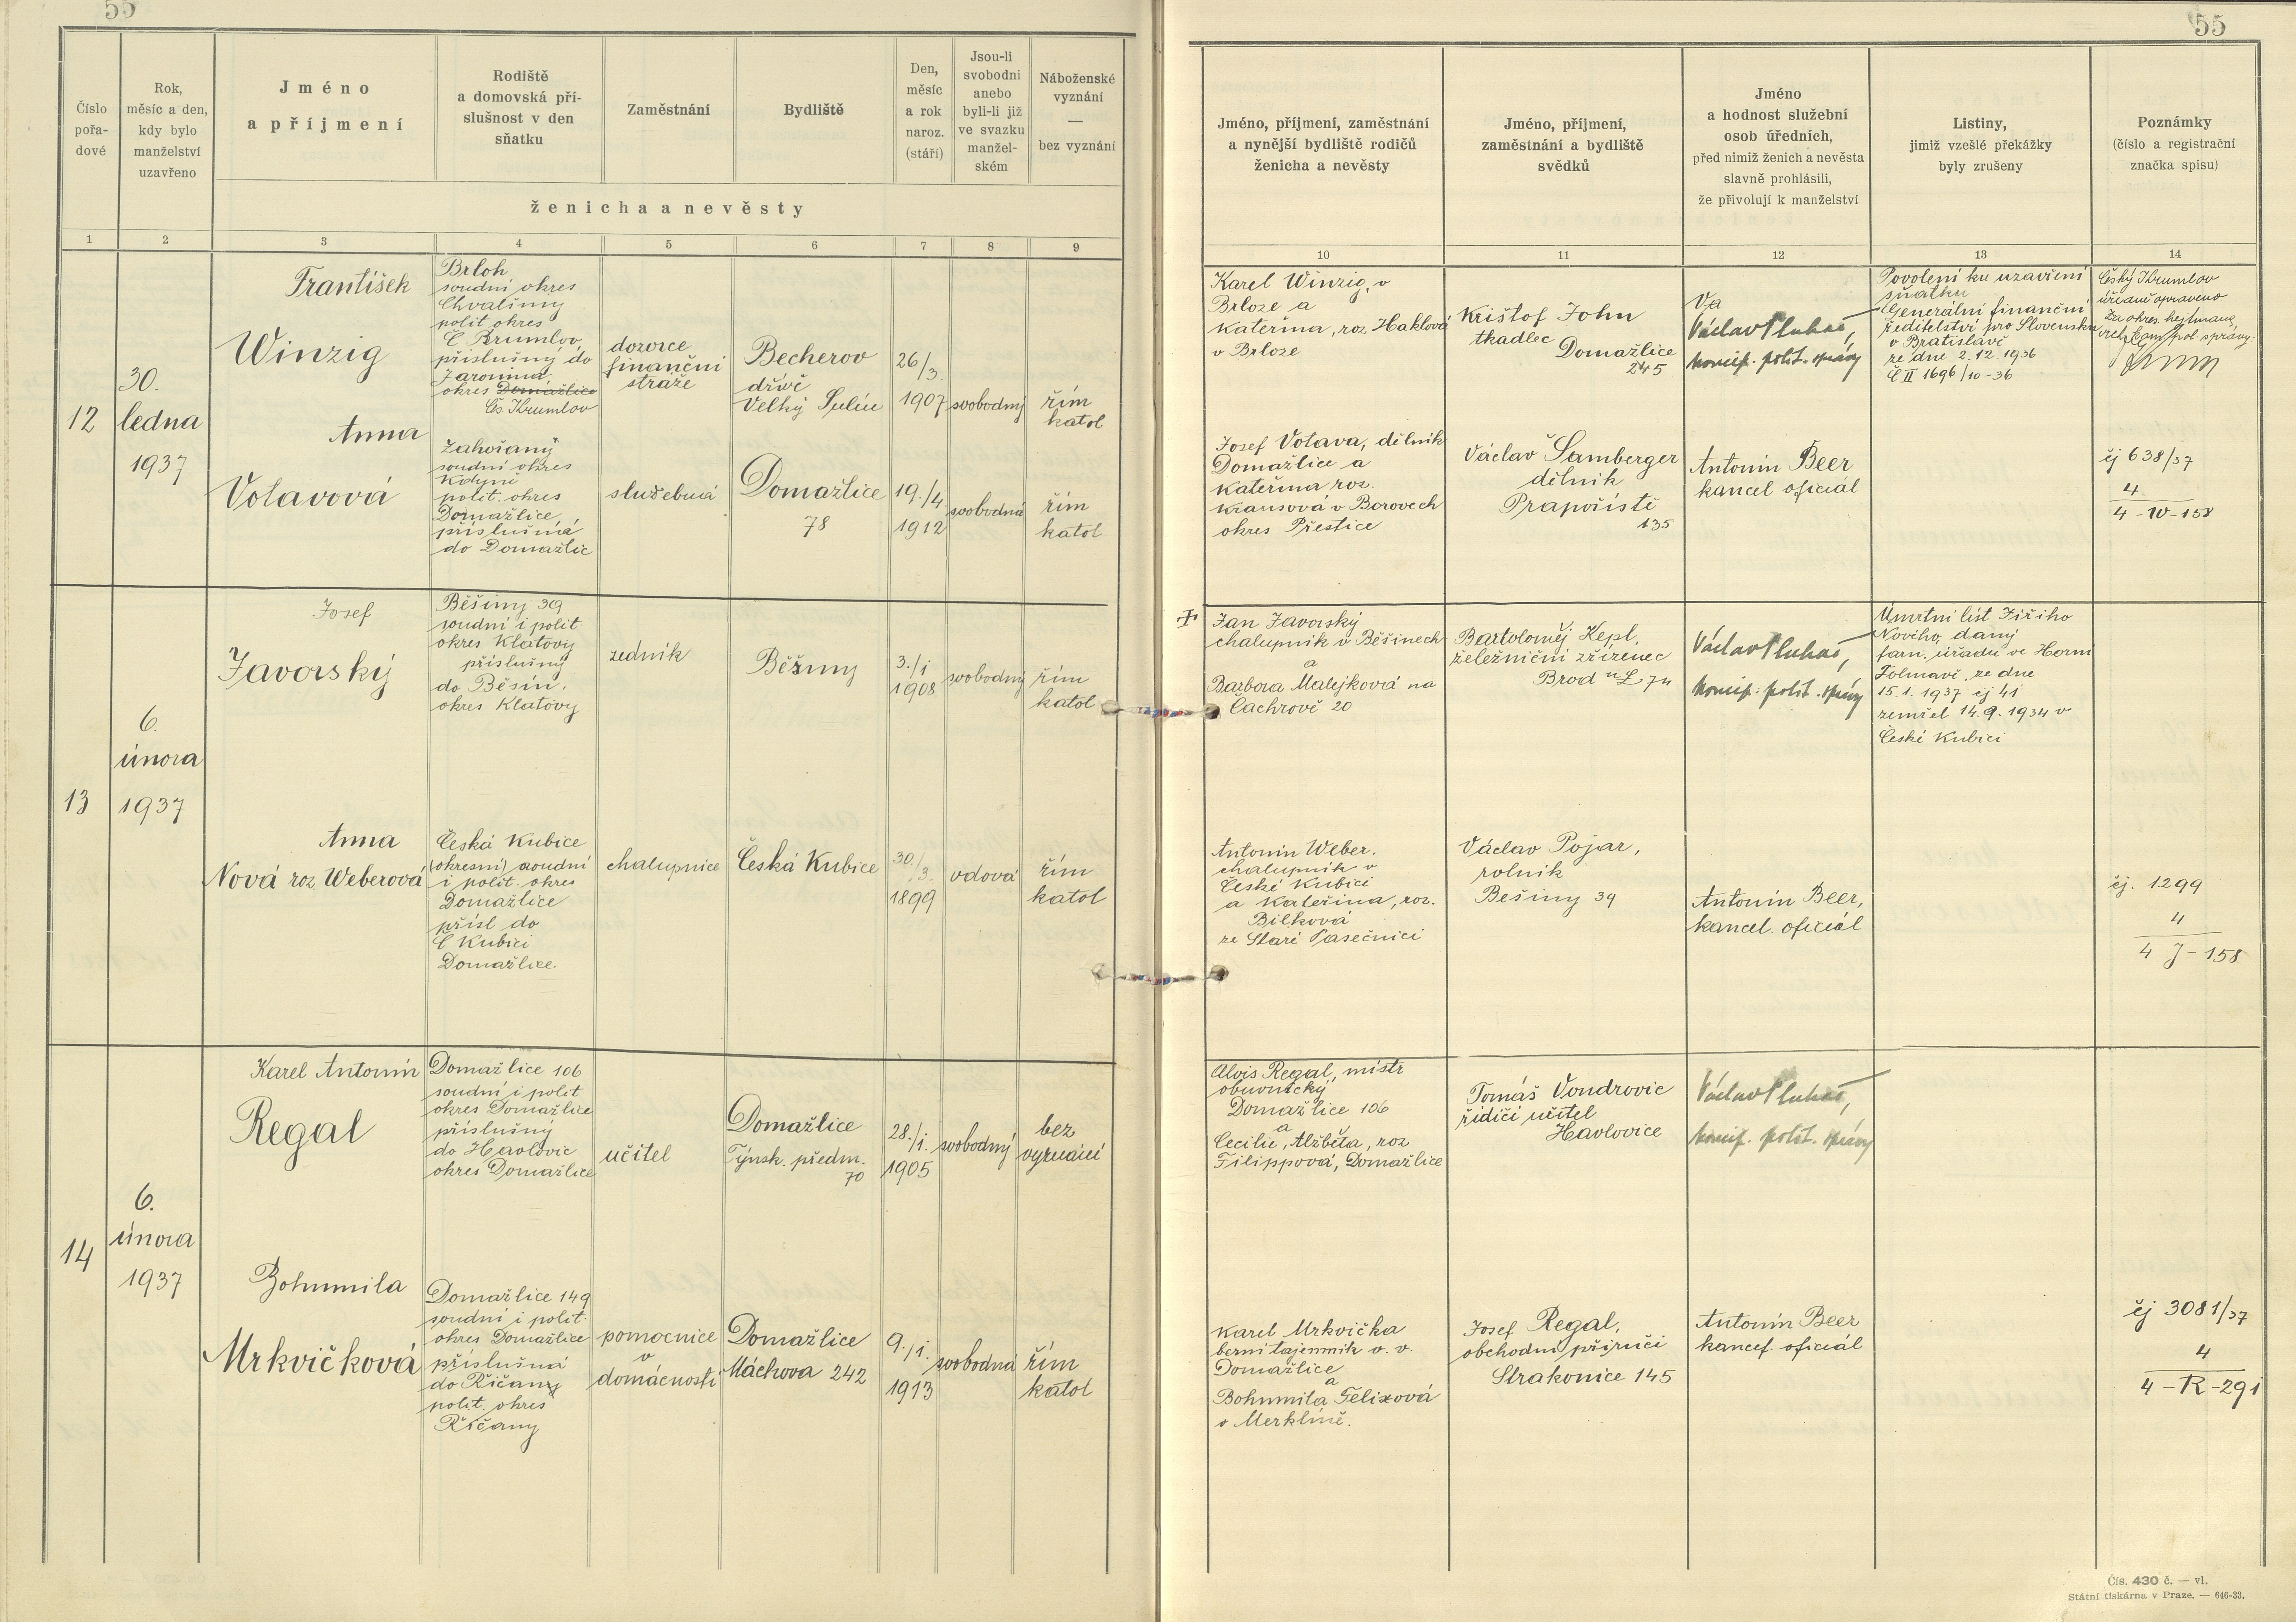 55
55
Číslo
pořa-
dové
Rok,
měsíc a den,
kdy bylo
manželství
uzavřeno
Jméno
a příjmení
Rodiště
a domovská pří-
slušnost v den
sňatku
Zaměstnání
Bydliště
Den,
měsíc
a rok
naroz.
(stáří)
Jsou-li
svobodni
anebo
byli-li již
ve svazku
manžel-
ském
Náboženské
vyznání
—
bez vyznání
ženicha a nevěsty
Jméno, příjmení, zaměstnání
a nynější bydliště rodičů
ženicha a nevěsty
Jméno, příjmení,
zaměstnání a bydliště
svědků
Jméno
a hodnost služební
osob úředních,
před nimiž ženich a nevěsta
slavně prohlásili,
že přivolují k manželství
Listiny,
jimiž vzešlé překážky
byly zrušeny
Poznámky
(číslo a registrační
značka spisu)
1 2 3 4 5 6 7 8 9 10 11 12 13 14
12
30.
ledna
1937
František
Winzig
Brloh
soudní okres
Chvalšiny
polit okres
Č Krumlov
příslušný do
Jaronína
okres Domažlice
Čs. Krumlov
dozorce
finanční
stráže
Becherov
dříve
Velký Sulín
26/3.
1907
svobodný
řím
katol
Karel Winzig, v
Brloze a
Kateřina, roz. Haklová
v Brloze
Krištof John
tkadlec
Domažlice
245
Va
Václav Pluhař,
koncip. polit. správy
Povolení ku uzavření
sňatku
Generální finanční
ředitelství pro Slovensko
v Bratislavě
ze dne 2.12.1936
Č II 1696/10-36
Český Krumlov
úředně opraveno
Za okres. hejtmana
Anna
Votavová
Zahořany
soudní okres
Kdyně
polit. okres
Domažlice,
příslušná
do Domažlic
služebná
Domažlice
78
19./4
1912
svobodná
řím
katol
Josef Votava, dělník
Domažlice a
Kateřina roz.
Krausová v Borovech
okres Přeštice
Václav Šamberger
dělník
Prapořiště
135
Antonín Beer
kancel oficiál
čj 638/37
4
4-W-158
13
6.
února
1937
Josef
Javorský
Běšiny 39
soudní i polit
okres Klatovy
příslušný
do Běšin,
okres Klatovy
zedník
Běšiny
3./1
1908
svobodný
řím
katol
Jan Javorský
chalupník v Běšinech
a
Barbora Malejková na
Čachrově 20
Bartoloměj Kepl,
železniční zřízenec
Brod n/L 74
Václav Pluhař,
koncip. polit. správy
Úmrtní list Jiřího
Nového, daný
farn. úřadu ve Horní
Folmavě, ze dne
15.1.1937 čj 41
zemřel 14.9.1934 v
České Kubici
Anna
Nová roz. Weberová
Česká Kubice
(okresní) soudní
i polit. okres
Domažlice
přísl do
Č Kubici
Domažlice.
chalupnice
Česká Kubice
30./3.
1899
vdova
řím
katol
Antonín Weber,
chalupník v
České Kubici
a Kateřina, roz.
Bílková
ze Staré Pasečnici
Václav Pojar,
rolník
Bešiny 39
Antonín Beer,
kancel. oficiál
čj. 1299
4
4 J-158
14
6.
února
1937
Karel Antonín
Regal
Domažlice 106
soudní i polit
okres Domažlice
příslušný
do Havlovic
okres Domažlice
učitel
Domažlice
Týnsk. předm.
70
28./1.
1905
svobodný
bez
vyznání
Alois Regal, mistr
obuvnický
Domažlice 106
a
Cecilie, Alžběta, roz
Filippová, Domažlice
Tomáš Vondrovic
řídící učitel
Havlovice
Václav Pluhař,
koncip. polit. správy
Bohumila
Mrkvičková
Domažlice 149
soudní i polit.
okres Domažlice
příslušná
do Říčany
polit. okres
Říčany
pomocnice
v
domácnosti
Domažlice
Máchova 242
9./1.
1913
svobodná
řím
katol
Karel Mrkvička
berní tajemník v. v.
Domažlice
a
Bohumila Felixová
v Merklíně.
Josef Regal,
obchodní příručí
Strakonice 145
Antonín Beer
kancel. oficiál
čj 3081/37
4
4-R-291
Čís. 430 č. — vl.
Státní tiskárna v Praze. — 646-33.